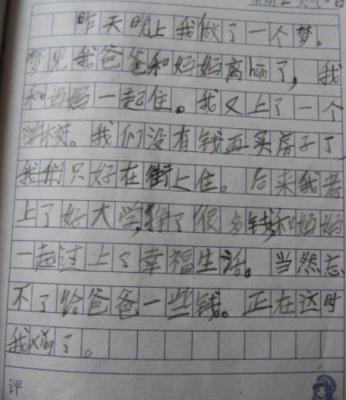 昨天晚上我做了一个梦。
梦见我爸爸和妈妈离hun了，我
和妈妈一起住。我又上了一个
学校。我们没有钱再买房子了
我们只好在街上住。后来我考
上了好大学，挣了很多钱和妈妈
一起过上了幸福生活。当然忘
不了给爸爸一些钱。正在这时
我xing了。
评